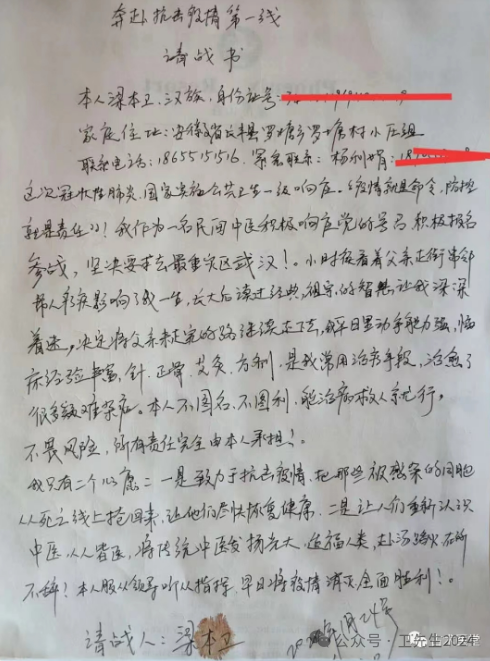 奔赴抗击疫情第一线
请战书
本人梁本卫,汉族,身份证号:
家庭住址:安徽省长丰县罗塘乡罗塘村小庄组
联系电话:1865515516.紧急联系:杨利娟:
这次冠状性肺炎,国家实施公共卫生一级响应。《疫情就是命令,防控
就是责任》!我作为一名民间中医积极响应党的号召积极报名
参战,坚决要求去最重灾区武汉!。小时候看着父亲走街串邻
帮人看疾影响了我一生,长大后读过经典,祖宗的智慧让我深深
着迷,决定将父亲未走完的路继续走下去,我平日里动手能力强,临
床经验丰富,针、正骨、艾灸、方剂,是我常用治病手段,治愈了
很多疑难杂症。本人不图名、不图利、能治病救人就行,
不畏风险,所有责任完全由本人承担!。
我只有二个心愿:一是致力于抗击疫情,把那些被感染的同胞
从死亡线上抢回来,让他们尽快恢复健康.二是让人们重新认识
中医,人人皆医,将传统中医发扬光大,造福人类,赴汤蹈火在所
不辞!本人服从领导听从指挥,早日将疫情消灭,全面胜利!。
请战人:梁本卫
20 年1月24号
公众号·卫先生202